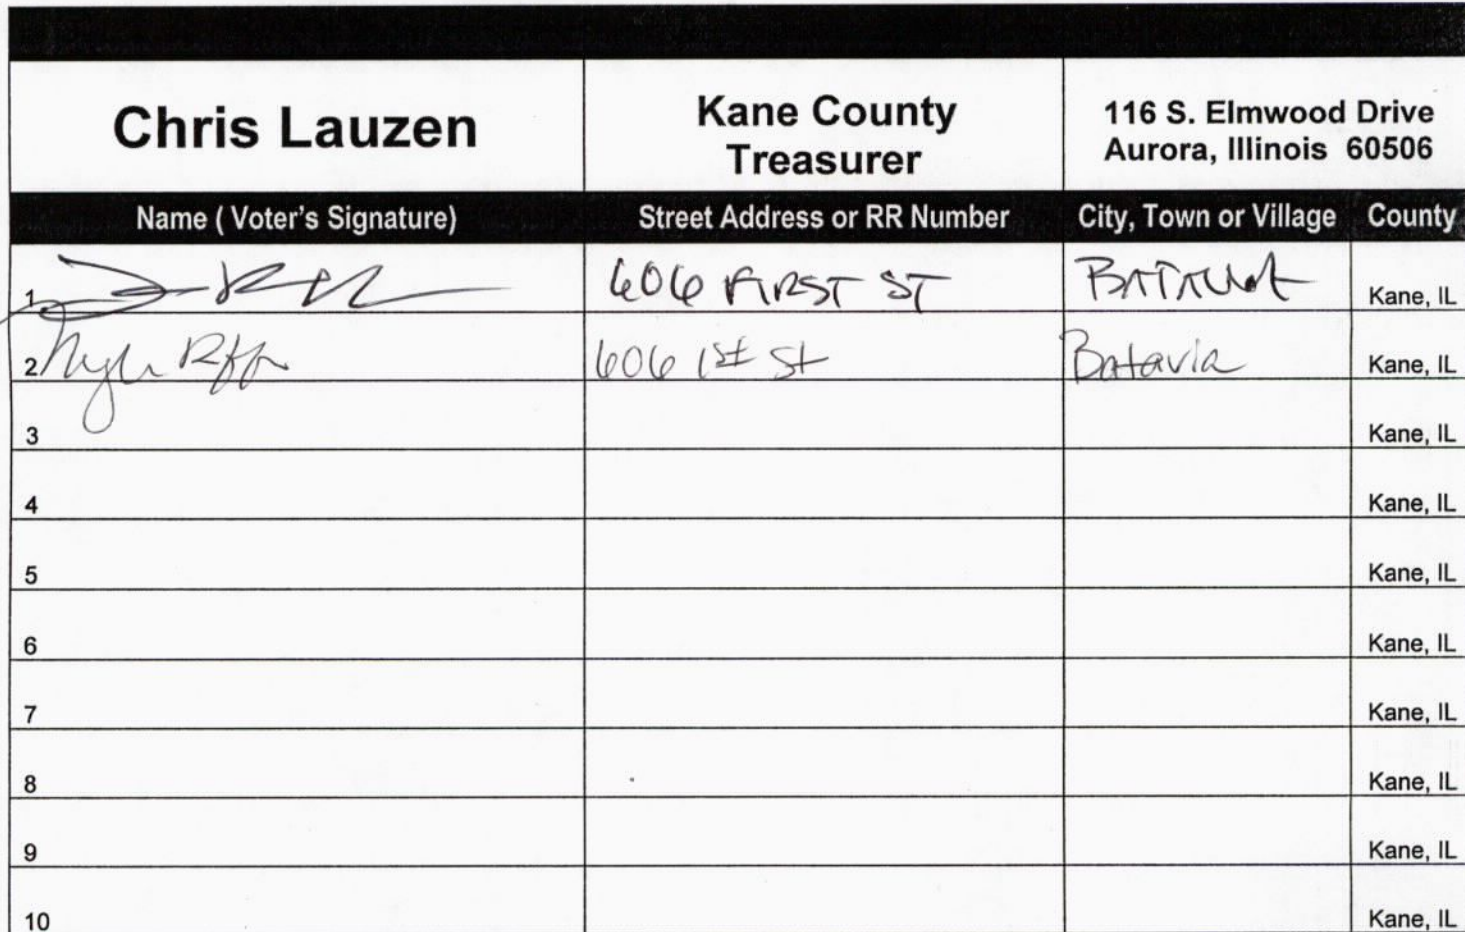 Chris Lauzen
Kane County
Treasurer
116 S. Elmwood Drive
Aurora, Illinois 60506
Name ( Voter's Signature) Street Address or RR Number City, Town or Village County
1 606 FIRST ST BATAVIA Kane, IL
2 606 1st St Batavia Kane, IL
3 Kane, IL
4 Kane, IL
5 Kane, IL
6 Kane, IL
7 Kane, IL
8 Kane, IL
9 Kane, IL
10 Kane, IL